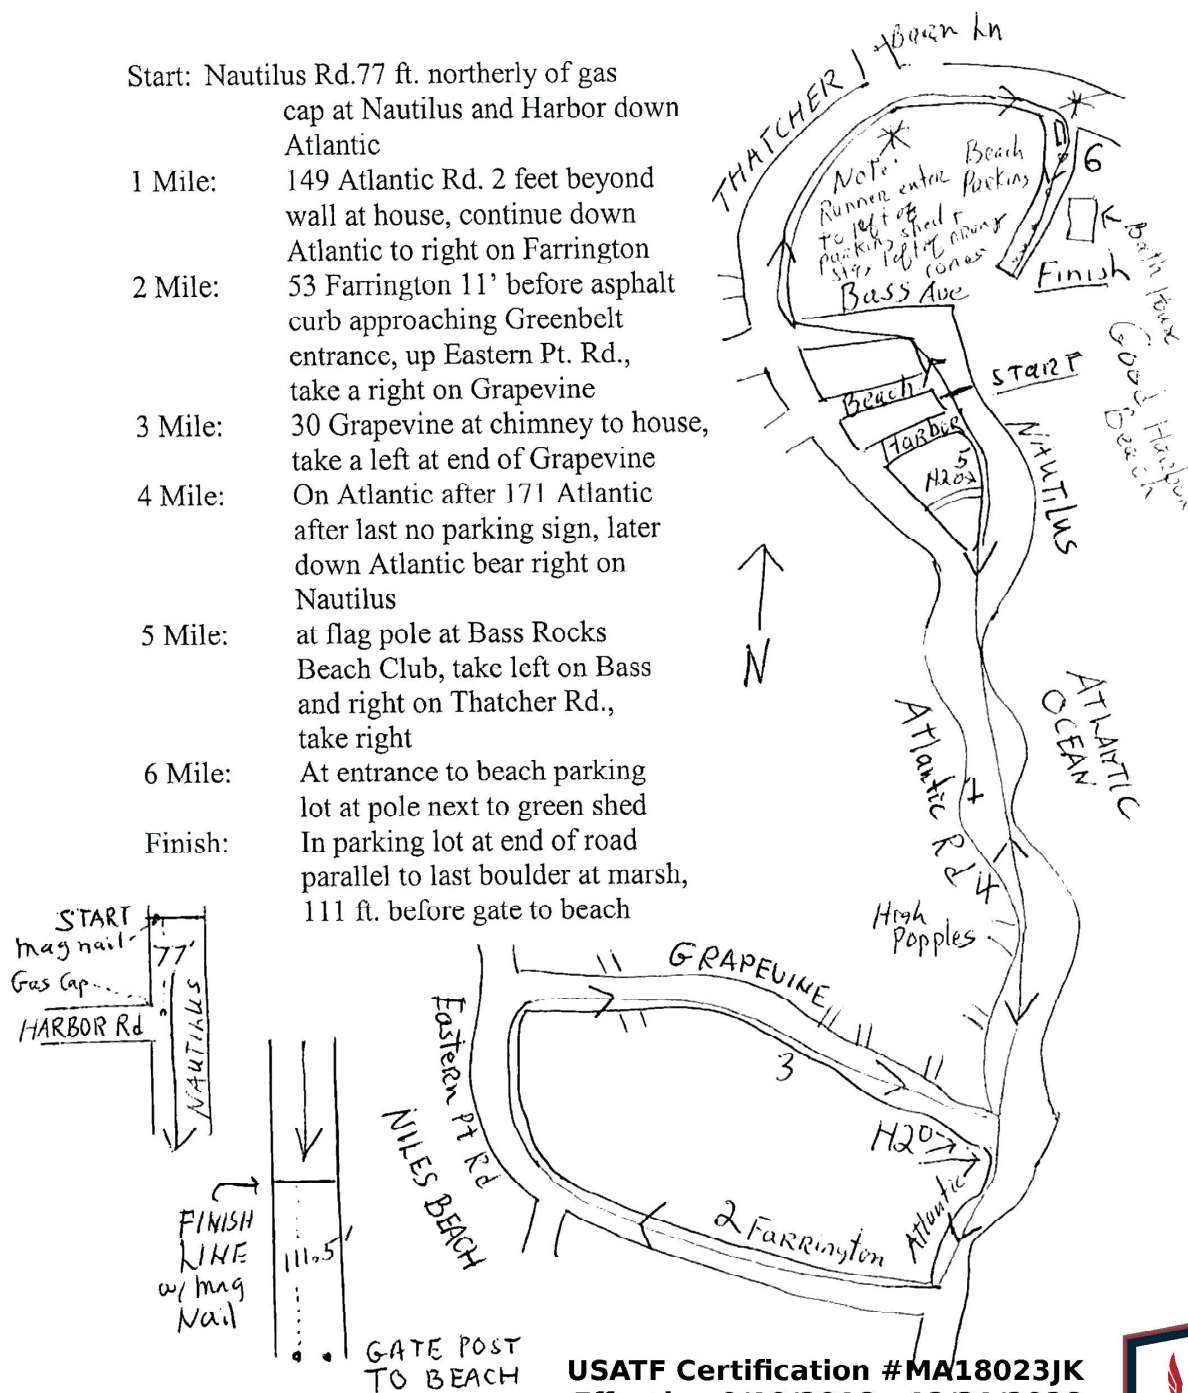 Start: Nautilus Rd.77 ft. northerly of gas
cap at Nautilus and Harbor down
Atlantic
1 Mile: 149 Atlantic Rd. 2 feet beyond
wall at house, continue down
Atlantic to right on Farrington
2 Mile: 53 Farrington 11' before asphalt
curb approaching Greenbelt
entrance, up Eastern Pt. Rd.,
take a right on Grapevine
3 Mile: 30 Grapevine at chimney to house,
take a left at end of Grapevine
4 Mile: On Atlantic after 171 Atlantic
after last no parking sign, later
down Atlantic bear right on
Nautilus
5 Mile: at flag pole at Bass Rocks
Beach Club, take left on Bass
and right on Thatcher Rd.,
take right
6 Mile: At entrance to beach parking
lot at pole next to green shed
Finish: In parking lot at end of road
parallel to last boulder at marsh,
111 ft. before gate to beach
Ln
THATCHER
Note:
Runner enter Beach
Parking
to left of
parking shed +
stay left of
cones
6
Finish
Bath House
Good Harbor
Beach
Bass Ave
START
Beach
Harbor
5
H20
NAUTILUS
N
ATLANTIC
OCEAN
Atlantic Rd
4
High
Popples
START
mag nail
77'
Gas Cap
HARBOR Rd
NAUTILUS
GRAPEVINE
Eastern Pt Rd
NILES BEACH
3
H20
Atlantic
2 Farrington
FINISH
LINE
w/ mag
Nail
111.5'
GATE POST
TO BEACH
USATF Certification #MA18023JK